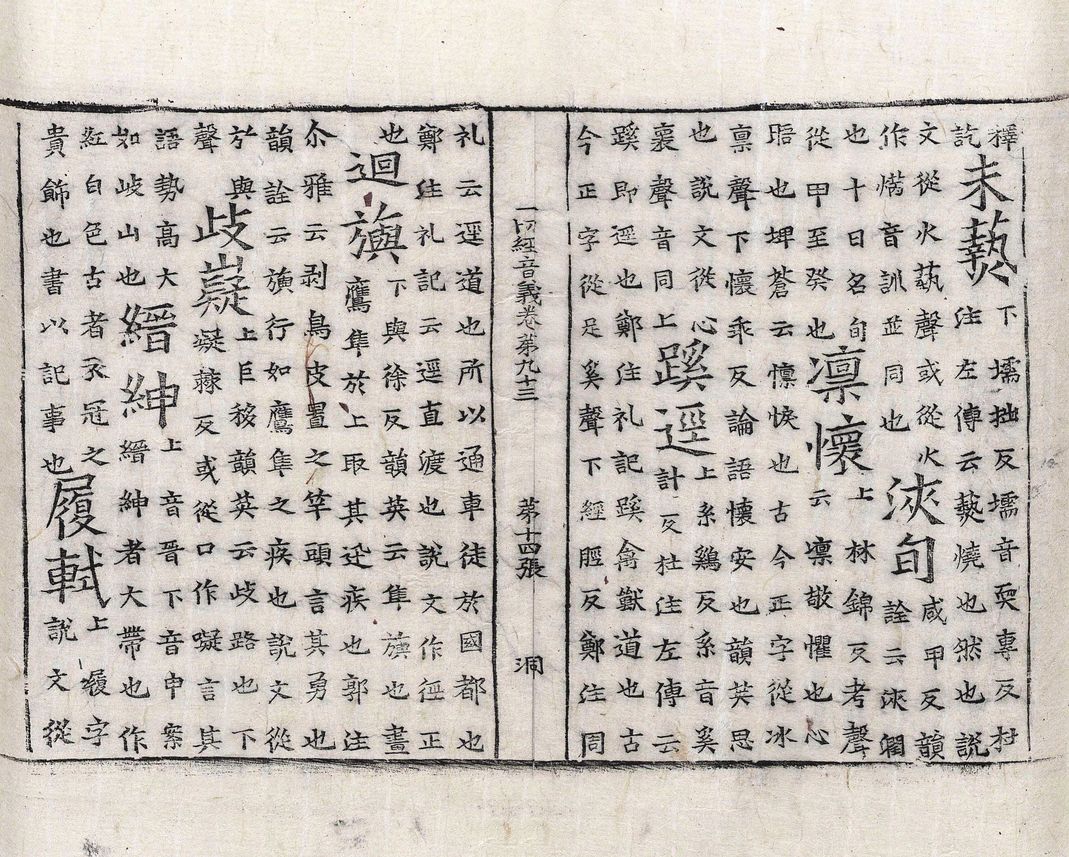 釋
訖
未蓺
下壖拙反壖音耎專反杜
注左傳云爇燒也然也說
文從火蓺聲或從火
作焫音訓並同也
浹旬
咸甲反韻
詮云浹闍
也十日名旬
從甲至癸也
凜懷
上林錦反考聲
云凜敬懼也心
𤺺也埤蒼云懍悷也古今正字從冰
禀聲下懷乖反論語懷安也韻英思
也說文從心
褱聲音同上
蹊逕
上系雞反系音奚
計反杜注左傳云
蹊即逕也鄭注礼記蹊禽獸道也古
今正字從足奚聲下經脛反鄭注周
一切經音義卷第九十三 第十四張 洞
礼云逕道也所以通車徒於國都也
鄭注礼記云逕直渡也說文作徑正
也
迴旟
下與徐反韻英云隼旟也畫
鷹隼於上取其迅疾也郭注
尒雅云剥鳥皮置之竿頭言其勇也
韻詮云旟行如鷹隼之疾也說文從
㫃與
聲
歧嶷
上巨移韻英云歧路也下
凝棘反或從口作㘈言其
語勢高大
如岐山也
縉紳
上音晋下音申案
縉紳者大帶也作
紅白色古者衣冠之
貴飾也書以記事也
履軾
上履字
說文從